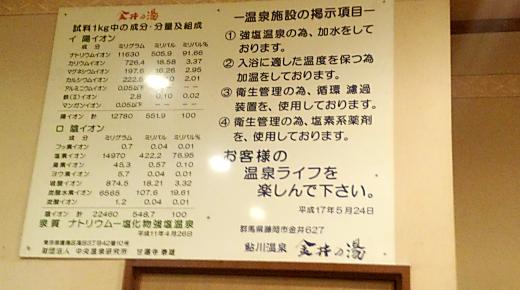 金井の湯
試料1kg中の成分・分量及組成
イ 陽イオン
成分 ミリグラム ミリバル ミリバル%
ナトリウムイオン 11630 505.9 91.66
カリウムイオン 726.4 18.58 3.37
マグネシウムイオン 197.6 16.26 2.95
カルシウムイオン 222.5 2.01
アルミニウムイオン 0.05以下
鉄(Ⅱ)イオン 2.8 0.10 0.02
マンガンイオン 0.05以下
陽イオン計 12780 551.9 100
ロ 陰イオン
成分 ミリグラム ミリバル ミリバル%
フッ素イオン 0.7 0.04 0.01
塩素イオン 14970 422.2 76.95
臭素イオン 45.3 0.57 0.10
ヨウ素イオン 5.7 0.04 0.01
硫酸イオン 874.5 18.21 3.32
炭酸水素イオン 6565 107.6 19.61
炭酸イオン 1.2 0.04 0.01
陰イオン計 22460 548.7 100
泉質 ナトリウム-塩化物強塩温泉
平成11年4月26日
東京都豊島区高田3丁目42番10号
財団法人 中央温泉研究所 甘露寺 泰雄
―温泉施設の掲示項目―
① 強塩温泉の為、加水をして
おります。
② 入浴に適した温度を保つ為
加温をしております。
③ 衛生管理の為、循環 濾過
装置を、使用しております。
④ 衛生管理の為、塩素系薬剤
を、使用しております。
お客様の
温泉ライフを
楽しんで下さい。
平成17年5月24日
群馬県藤岡市金井627
鮎川温泉 金井の湯